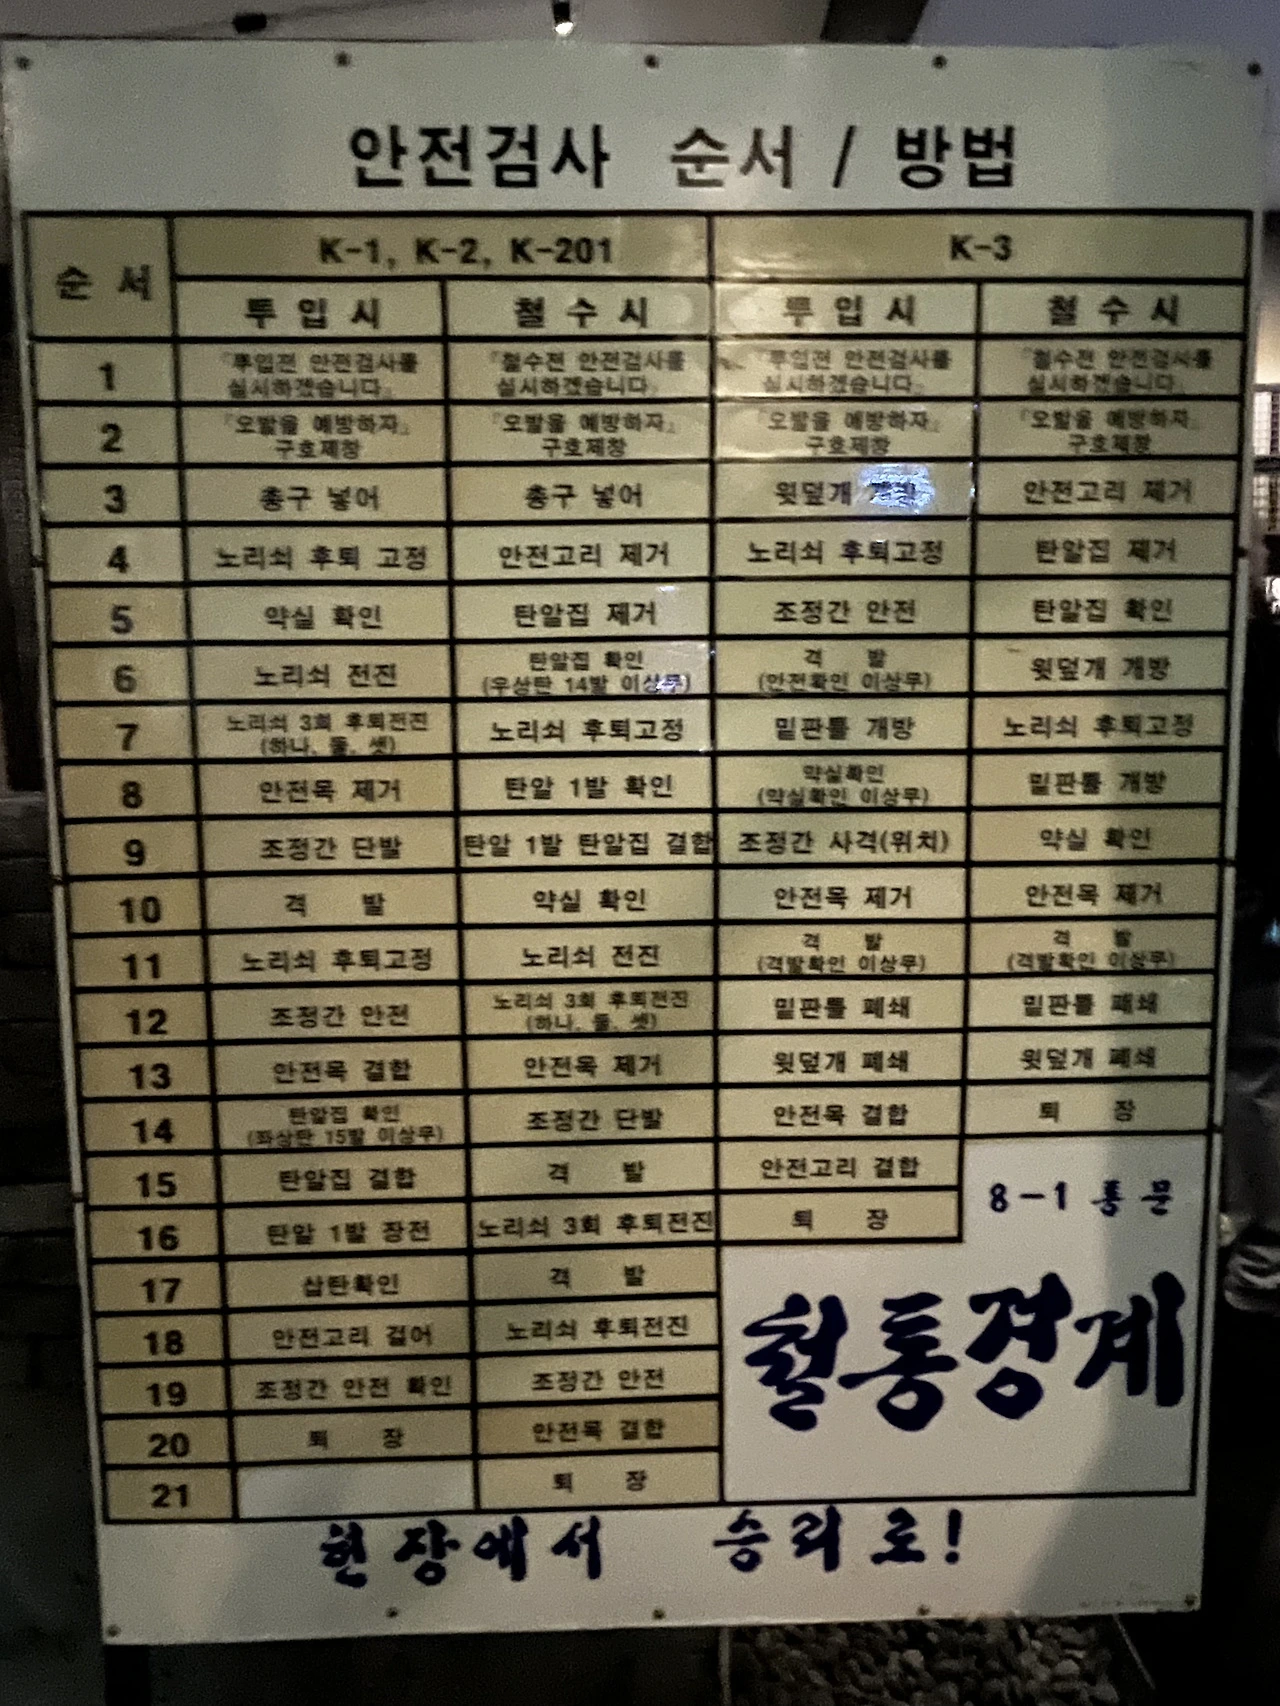 안전검사 순서 / 방법
순 서
K-1, K-2, K-201
K-3
투 입 시
철 수 시
투 입 시
철 수 시
1
『투입전 안전검사를
실시하겠습니다』
『철수전 안전검사를
실시하겠습니다』
『투입전 안전검사를
실시하겠습니다』
『철수전 안전검사를
실시하겠습니다』
2
『오발을 예방하자』
구호제창
『오발을 예방하자』
구호제창
『오발을 예방하자』
구호제창
『오발을 예방하자』
구호제창
3
총구 넣어
총구 넣어
윗덮개 개방
안전고리 제거
4
노리쇠 후퇴 고정
안전고리 제거
노리쇠 후퇴고정
탄알집 제거
5
약실 확인
탄알집 제거
조정간 안전
탄알집 확인
6
노리쇠 전진
탄알집 확인
(우상탄 14발 이상무)
격 발
(안전확인 이상무)
윗덮개 개방
7
노리쇠 3회 후퇴전진
(하나, 둘, 셋)
노리쇠 후퇴고정
밑판틀 개방
노리쇠 후퇴고정
8
안전목 제거
탄알 1발 확인
약실확인
(약실확인 이상무)
밑판틀 개방
9
조정간 단발
탄알 1발 탄알집 결합
조정간 사격(위치)
약실 확인
10
격 발
약실 확인
안전목 제거
안전목 제거
11
노리쇠 후퇴고정
노리쇠 전진
격 발
(격발확인 이상무)
격 발
(격발확인 이상무)
12
조정간 안전
노리쇠 3회 후퇴전진
(하나, 둘, 셋)
밑판틀 폐쇄
밑판틀 폐쇄
13
안전목 결합
안전목 제거
윗덮개 폐쇄
윗덮개 폐쇄
14
탄알집 확인
(좌상탄 15발 이상무)
조정간 단발
안전목 결합
퇴 장
15
탄알집 결합
격 발
안전고리 결합
16
탄알 1발 장전
노리쇠 3회 후퇴전진
퇴 장
8-1 통 문
17
삽탄확인
격 발
18
안전고리 걸어
노리쇠 후퇴전진
19
조정간 안전 확인
조정간 안전
20
퇴 장
안전목 결합
21
퇴 장
철통경계
현장에서 승리로!